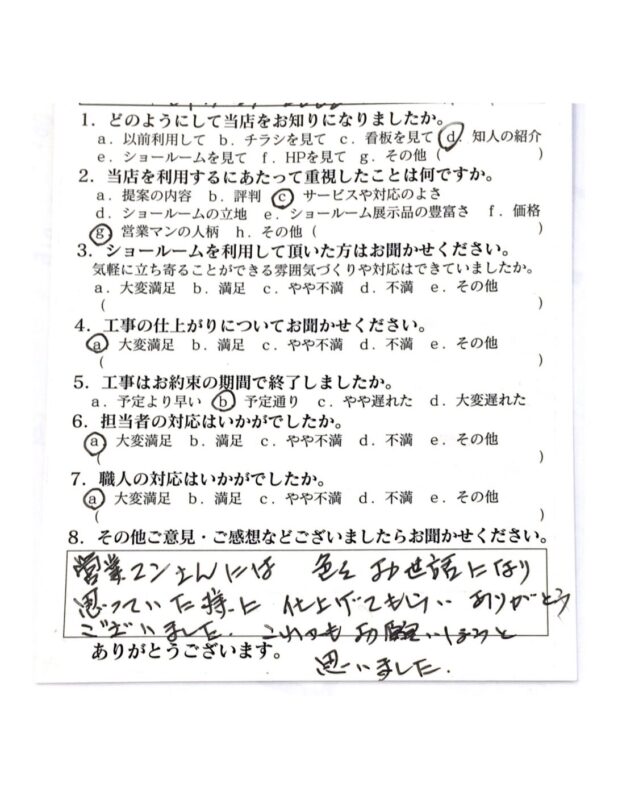 1．どのようにして当店をお知りになりましたか。
a．以前利用して b．チラシを見て c．看板を見て d．知人の紹介
e．ショールームを見て f．HPを見て g．その他（　　　）
2．当店を利用するにあたって重視したことは何ですか。
a．提案の内容 b．評判 c サービスや対応のよさ
d．ショールームの立地 e．ショールーム展示品の豊富さ f．価格
g 営業マンの人柄 h．その他（　　　）
3．ショールームを利用して頂いた方はお聞かせください。
気軽に立ち寄ることができる雰囲気づくりや対応はできていましたか。
a．大変満足 b．満足 c．やや不満 d．不満 e．その他
（　　　）
4．工事の仕上がりについてお聞かせください。
a 大変満足 b．満足 c．やや不満 d．不満 e．その他
（　　　）
5．工事はお約束の期間で終了しましたか。
a．予定より早い b 予定通り c．やや遅れた d．大変遅れた
6．担当者の対応はいかがでしたか。
a 大変満足 b．満足 c．やや不満 d．不満 e．その他
（　　　）
7．職人の対応はいかがでしたか。
a 大変満足 b．満足 c．やや不満 d．不満 e．その他
（　　　）
8．その他ご意見・ご感想などございましたらお聞かせください。
営業マンさんには 色々お世話になり
思っていた様に 仕上げてもらい ありがとう
ございました. お願いしようと
ありがとうございます。
思いました.